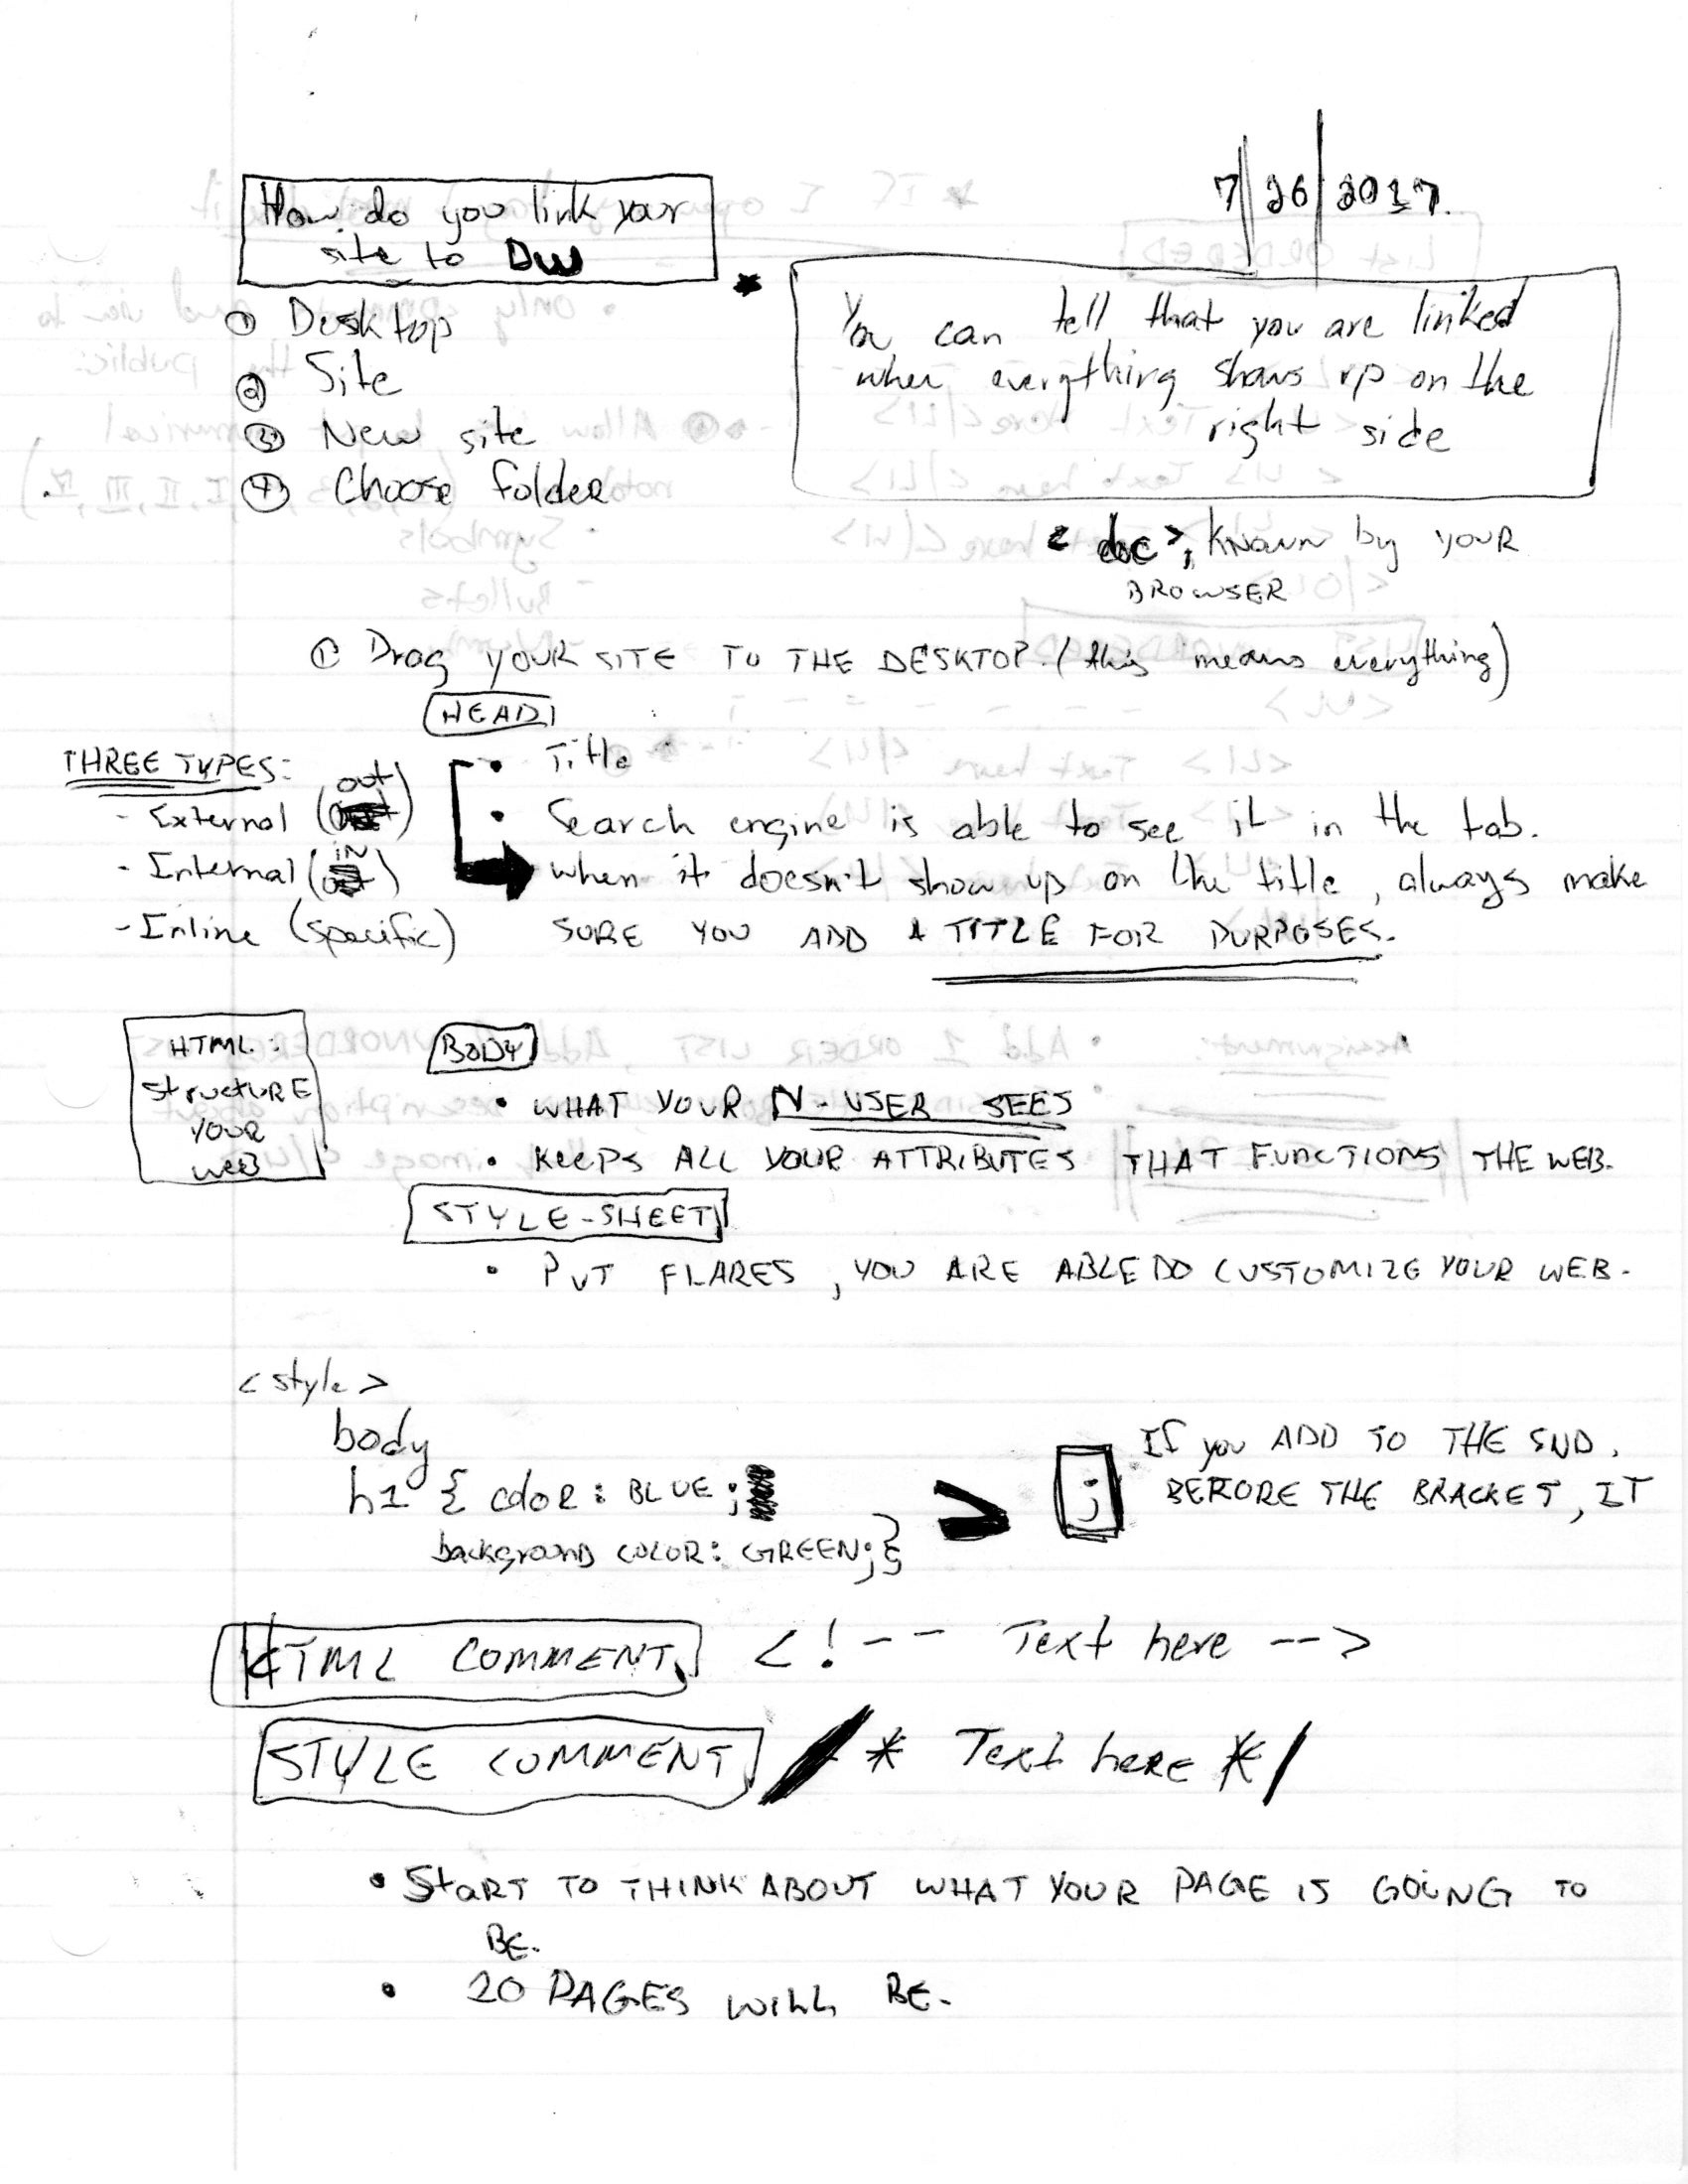 7/26/2017.
How do you link your
site to DW
① Desktop
② Site
③ New site
④ Choose folder
* You can tell that you are linked
when everything shows up on the
right side
< doc >, known by your
BROWSER
① Drag YOUR SITE TO THE DESKTOP. (this means everything)
HEAD
• Title
• Search engine is able to see it in the tab.
when it doesn't show up on the title, always make
SURE YOU ADD A TITLE FOR PURPOSES.
THREE TYPES:
- External (out)
- Internal (IN)
- Inline (specific)
HTML:
structURE
YOUR
WEB
BODY
• WHAT YOUR N-USER SEES
• KEEPS ALL YOUR ATTRIBUTES THAT FUNCTIONS THE WEB.
STYLE-SHEET
• PUT FLARES, YOU ARE ABLE DO CUSTOMIZE YOUR WEB.
<style>
body
h1 { coloR: BLUE;
backgrounD COLOR: GREEN;}
> ; If you ADD TO THE END.
BEFORE THE BRACKET, IT
HTML COMMENT <!-- Text here -->
STYLE COMMENT /* Text heRE */
• StaRT TO THINK ABOUT WHAT YOUR PAGE IS GOING TO
BE.
• 20 PAGES WILL BE.